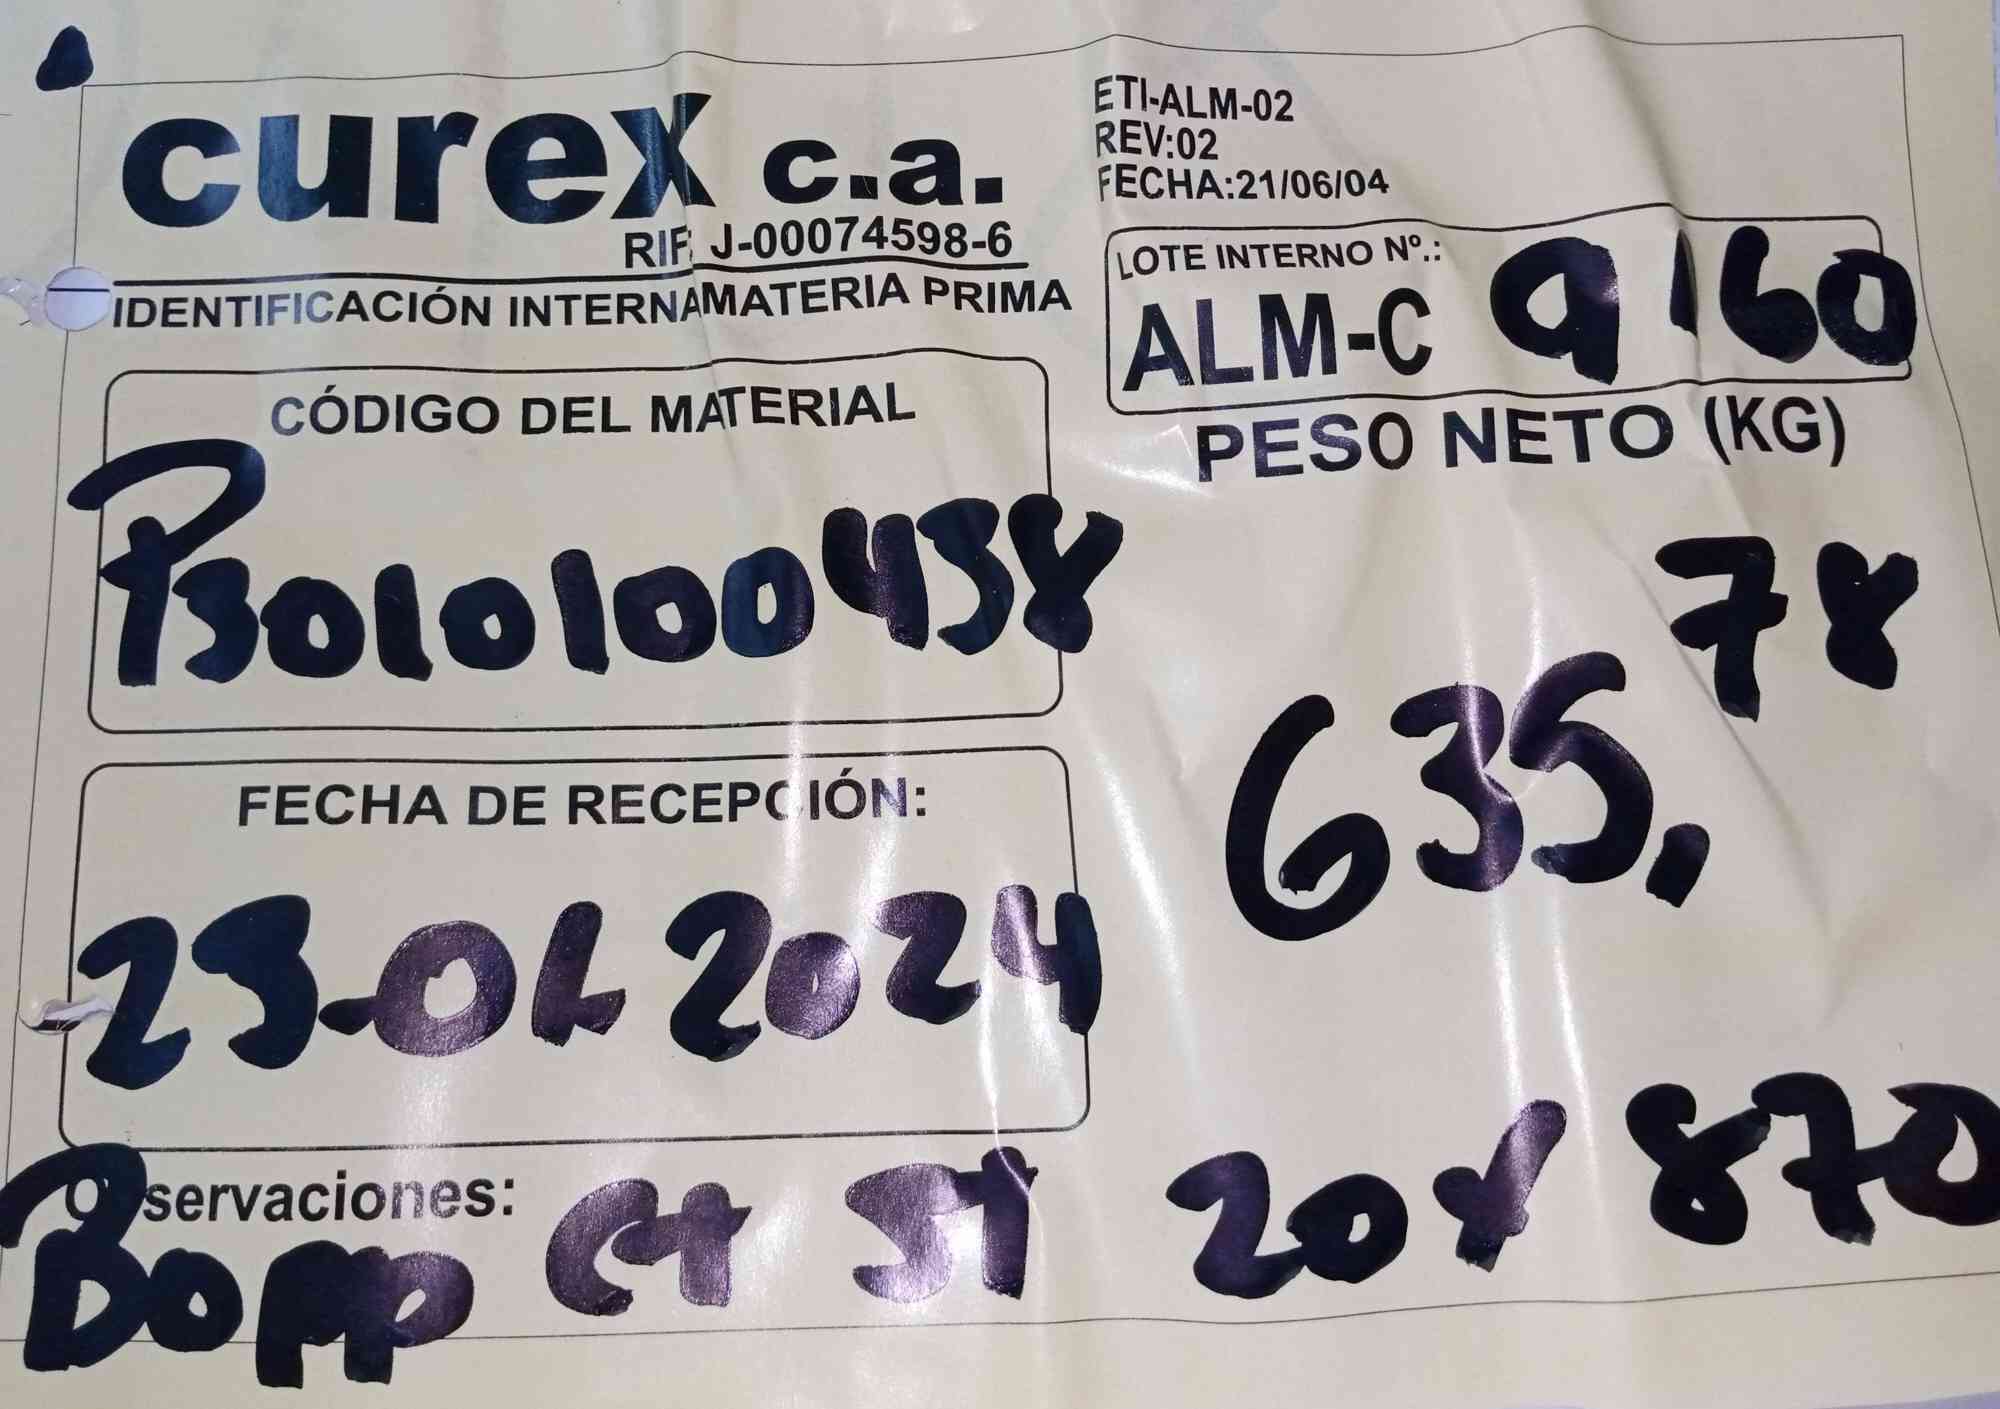 curex c.a.
RIF: J-00074598-6
IDENTIFICACIÓN INTERNA MATERIA PRIMA
ETI-ALM-02
REV:02
FECHA:21/06/04
LOTE INTERNO Nº.:
ALM-C 9160
CÓDIGO DEL MATERIAL
P3010100438
PESO NETO (KG)
635,78
FECHA DE RECEPCIÓN:
23-02 2024
Observaciones:
Bopp Ct ST 20 x 870